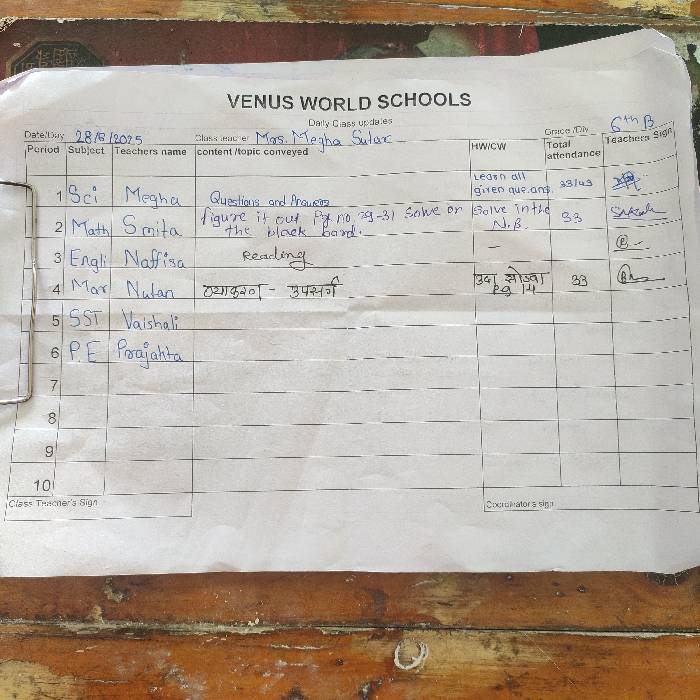 VENUS WORLD SCHOOLS
Daily Class updates
Date/Day 28/6/2025 Class teacher Mrs. Megha Sutar Grade /Div 6th B
Period Subject Teachers name content /topic conveyed HW/CW Total attendance Teachers Sign
1 Sci Megha Questions and Answers Learn all given que.ans 33/43
2 Math Smita figure it out Pg no. 29-31 Solve on the black bord. Solve in the N.B. 33
3 Engli Naffisa Reading -
4 Mar Nutan व्याकरण - उपसर्ग pg 14 33
5 SST Vaishali
6 P.E Prajakta
7
8
9
10
Class Teacher's Sign Coordinator's sign